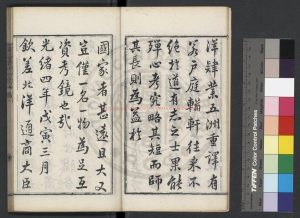 洋肄業五洲重譯有
若戶庭輶軒往來不
絕於道有志之士果能
殫心考究略其短而師
其長則為益於
國家者甚遠且大又
豈僅一名一物為足互
資考鏡也哉
光緒四年戊寅三月
欽差北洋通商大臣
TIFFEN Color Control Patches